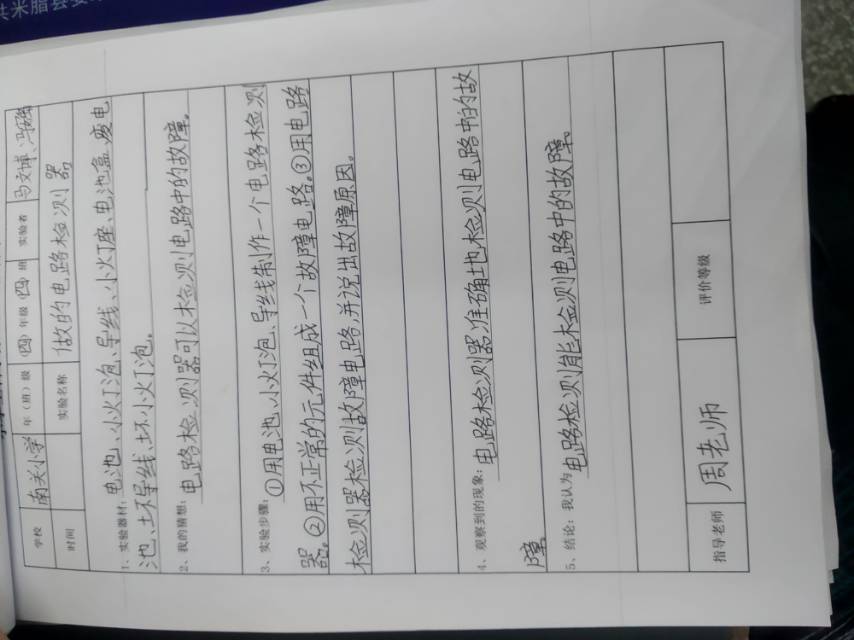 共米脂县委
学校 南关小学 年(班)级 (四)年级(四)班 实验者 马文博、冯
时间 实验名称 做的电路检测器
1、实验器材：电池、小火丁泡、导线、小火丁座、电池盒、废电
池、坏导线、坏小火丁泡。
2、我的猜想：电路检测器可以检测电路中的故障。
3、实验步骤：①用电池、小火丁泡、导线制作一个电路检测
器。②用不正常的元件组成一个故障电路。③用电路
检测器检测故障电路，并说出故障原因。
4、观察到的现象：电路检测器准确地检测电路中的故
障
5、结论：我认为电路检测能检测电路中的故障。
指导老师 周老师 评价等级